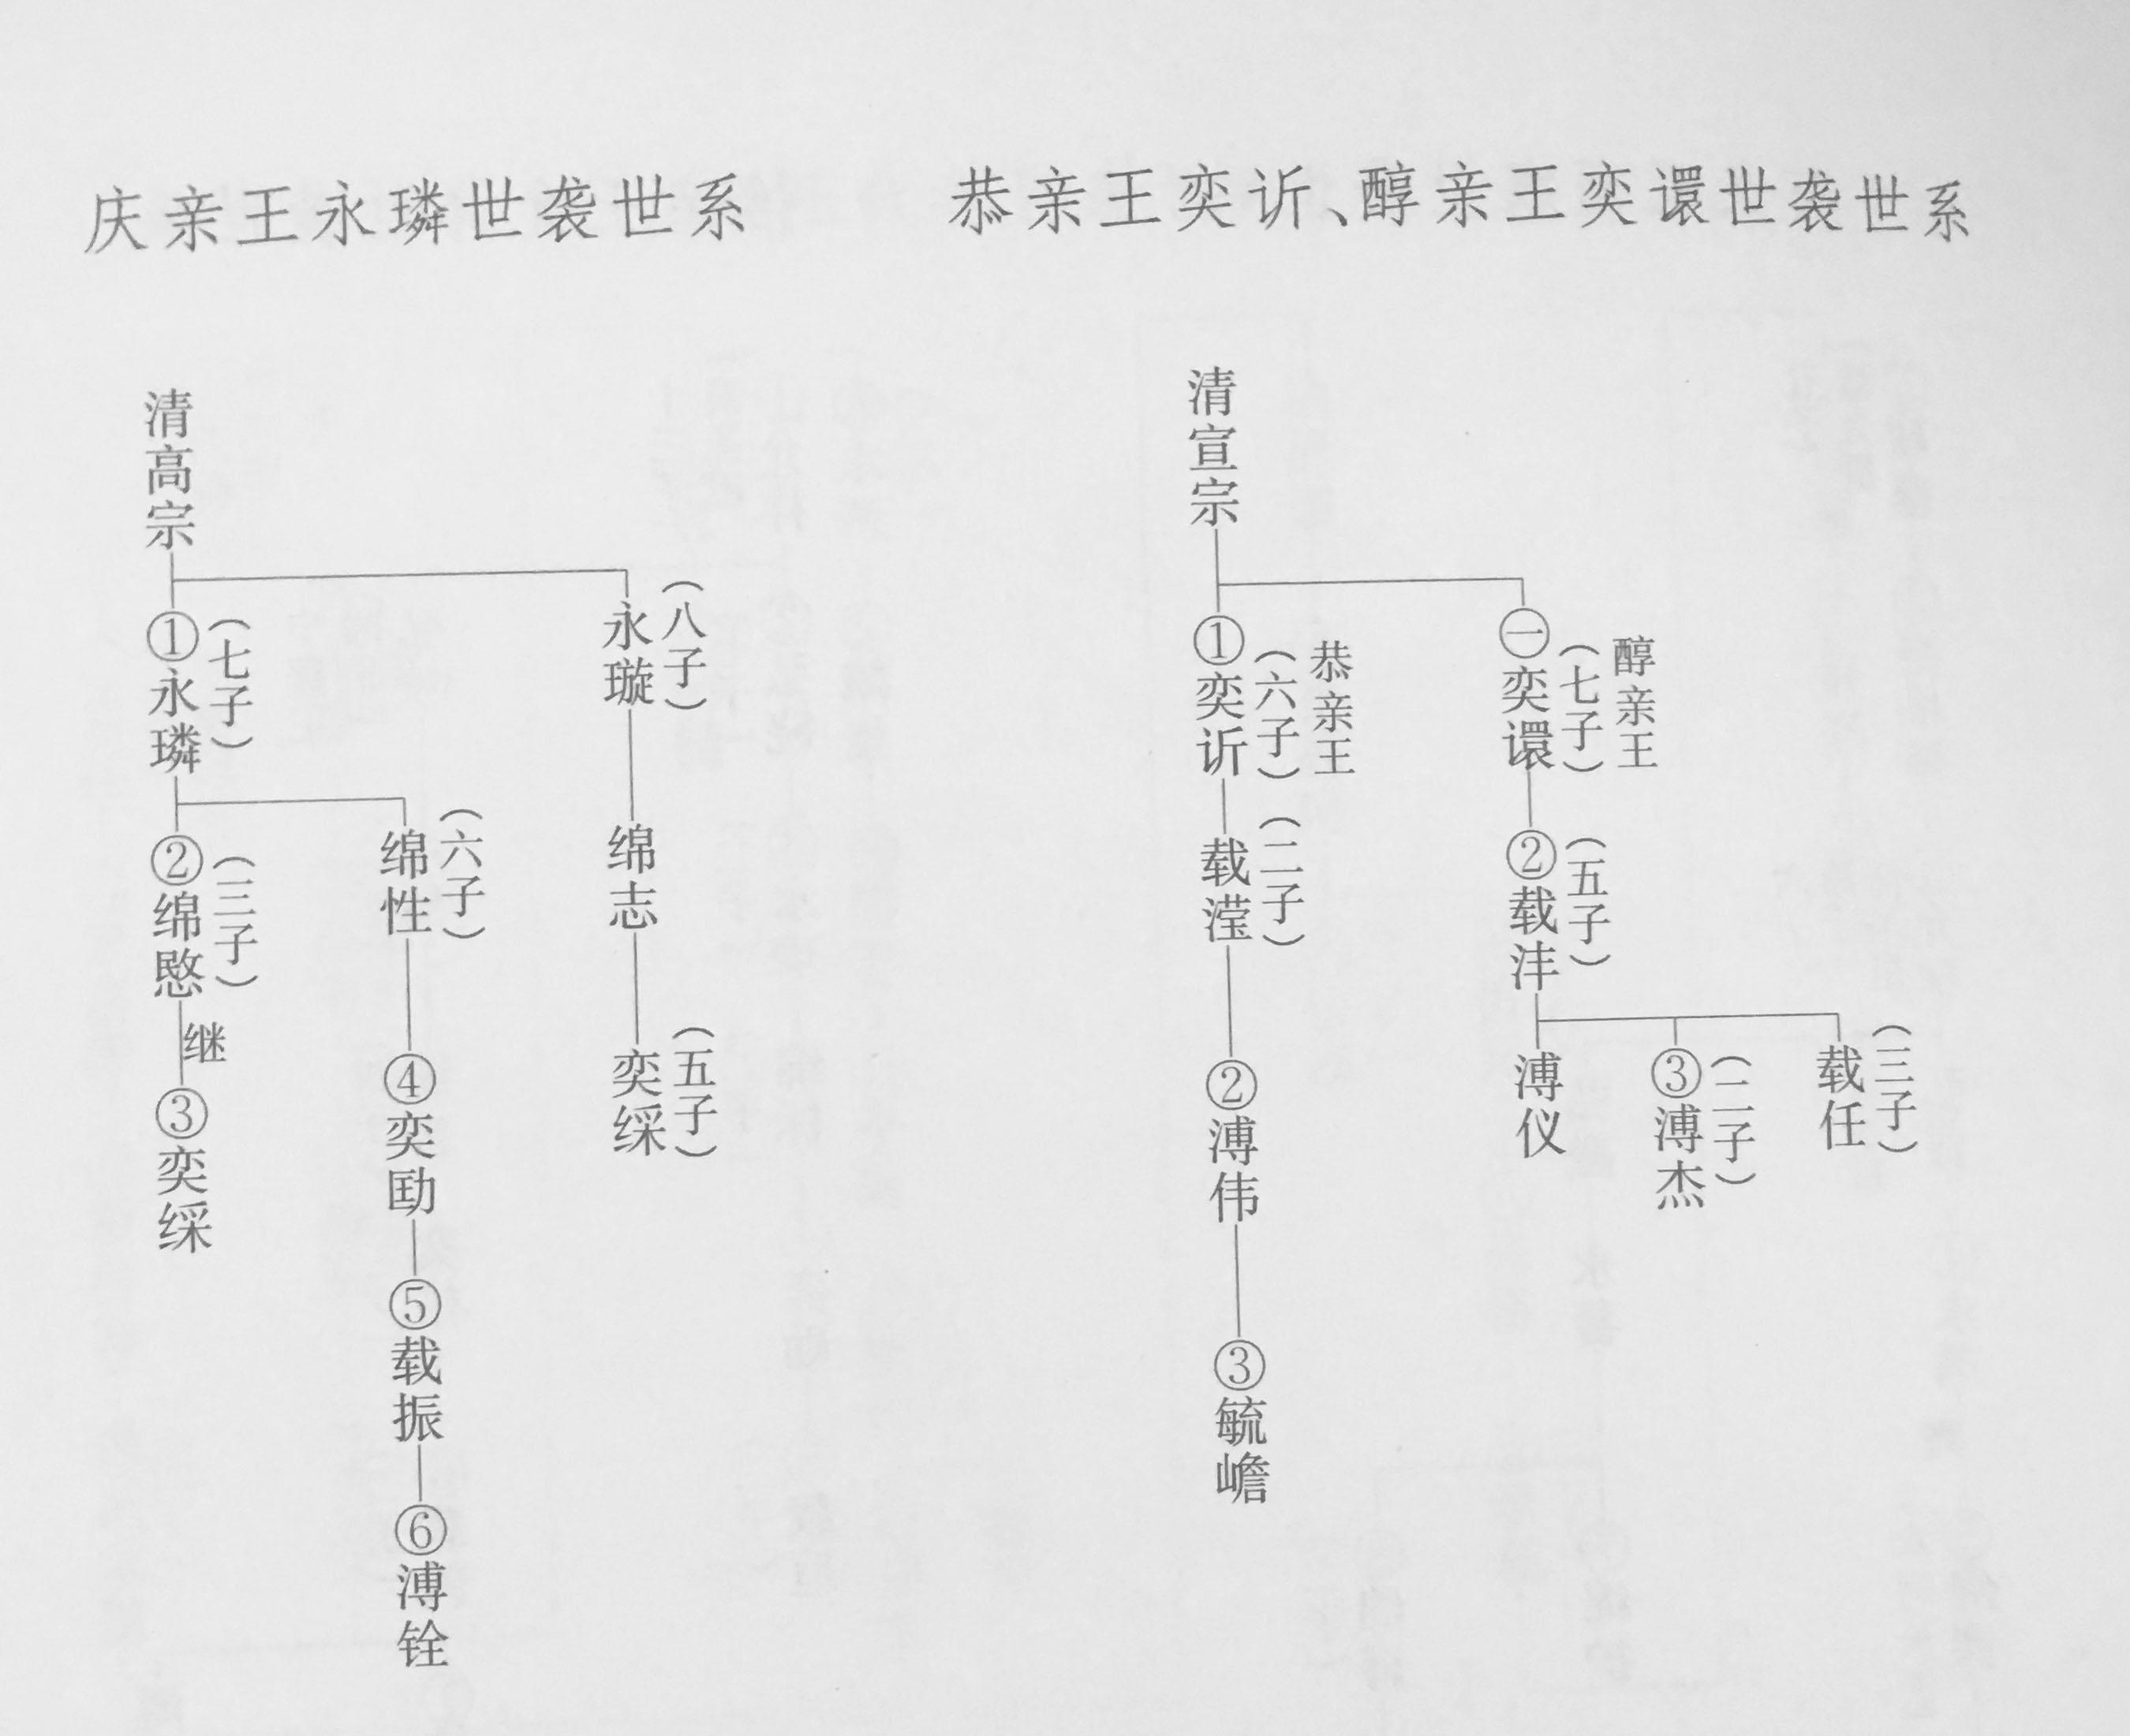 庆亲王永璘世袭世系
清高宗
①永璘
(七子)
②绵愍
(三子)
继
③奕綵
绵性
(六子)
④奕劻
⑤载振
⑥溥铨
永璇
(八子)
绵志
奕綵
(五子)
恭亲王奕䜣、醇亲王奕譞世袭世系
清宣宗
①奕䜣
(六子)
恭亲王
载滢
(二子)
②溥伟
③毓嶦
㊀奕譞
(七子)
醇亲王
②载沣
(五子)
溥仪
③溥杰
(二子)
载任
(三子)